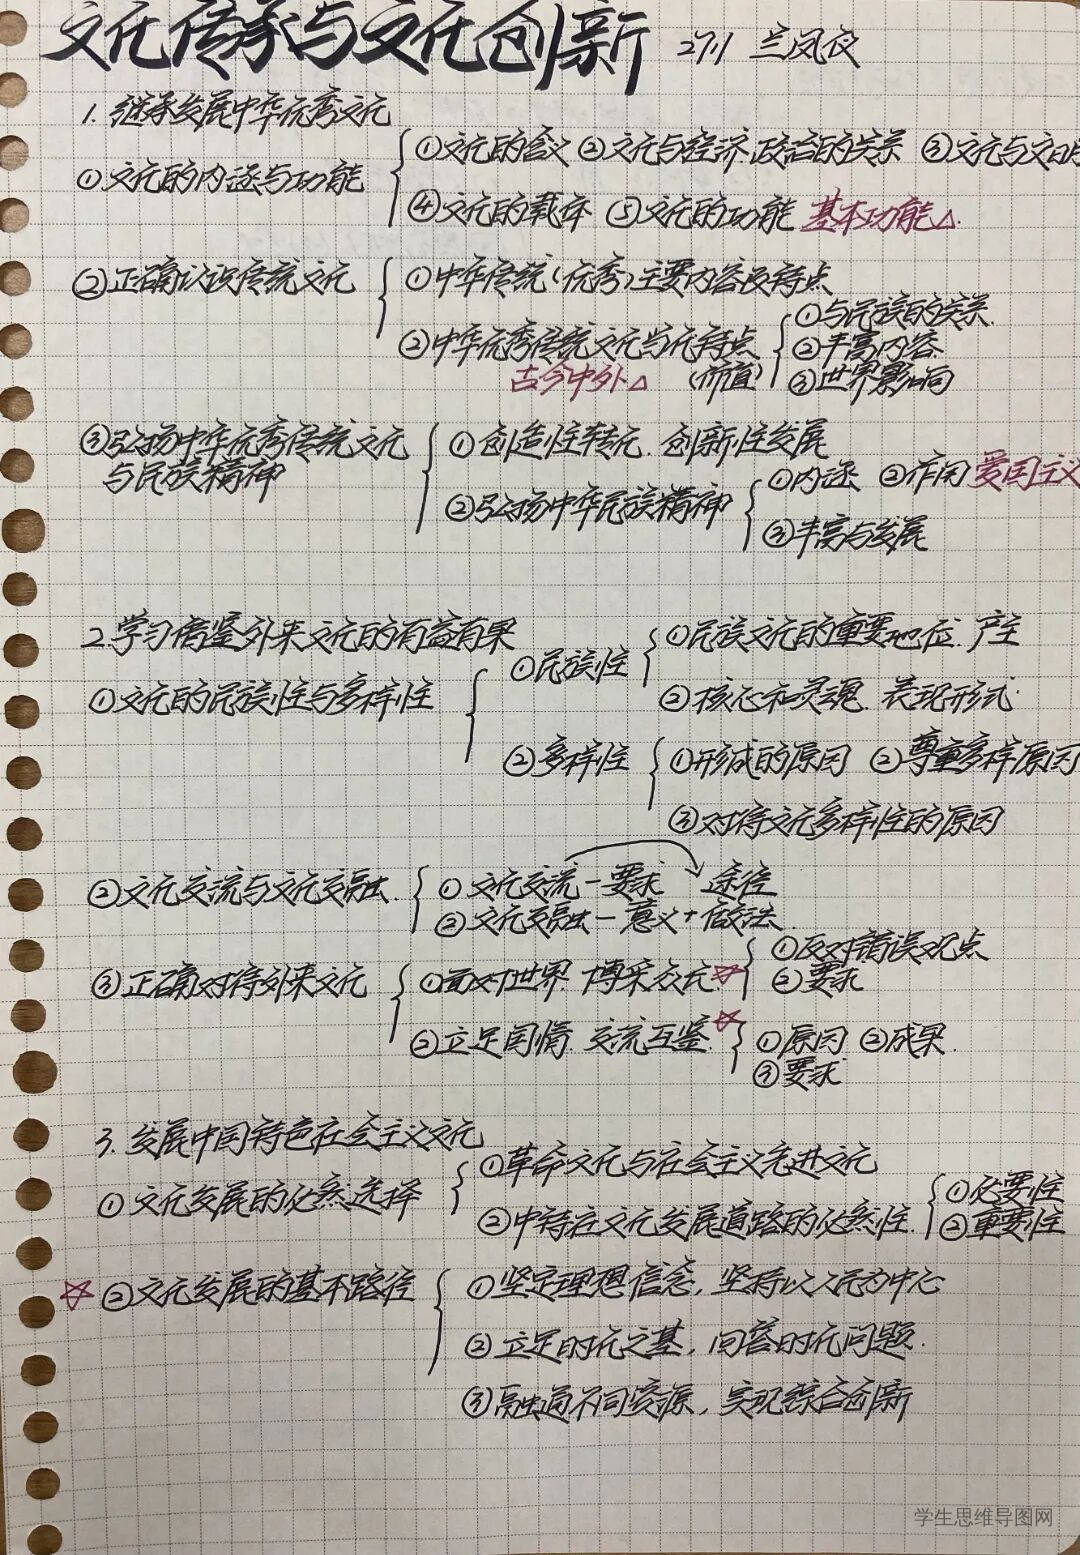 文化传承与文化创新 2711 兰凤仪
1. 继承发展中华优秀文化
①文化的内涵与功能
①文化的含义 ②文化与经济.政治的关系 ③文化与文明
④文化的载体 ⑤文化的功能 基本功能△.
②正确认识传统文化
①中华传统(优秀)主要内容及特点
②中华优秀传统文化当代特点
古今中外△ (价值)
①与民族的关系.
②丰富内容.
③世界影响
③弘扬中华优秀传统文化
与民族精神
①创造性转化. 创新性发展
②弘扬中华民族精神
①内涵 ②作用 爱国主义
③丰富与发展
2.学习借鉴外来文化的有益有果
①文化的民族性与多样性
①民族性
①民族文化的重要地位. 产生
②核心和灵魂. 表现形式.
②多样性
①形成的原因 ②尊重多样原因
③对待文化多样性的原因
②文化交流与文化交融.
①文化交流-要求 途径
②文化交融-意义+做法
③正确对待外来文化
①面对世界. 博采众长.☆
①反对错误观点
②要求
②立足国情. 交流互鉴.☆
①原因 ②成果.
③要求
3. 发展中国特色社会主义文化
①文化发展的必然选择
①革命文化与社会主义先进文化
②中特社文化发展道路的必然性.
①必要性
②重要性
☆②文化发展的基本路径
①坚定理想信念, 坚持以人民为中心
②立足时代之基, 回答时代问题.
③融通不同资源, 实现综合创新
学生思维导图网